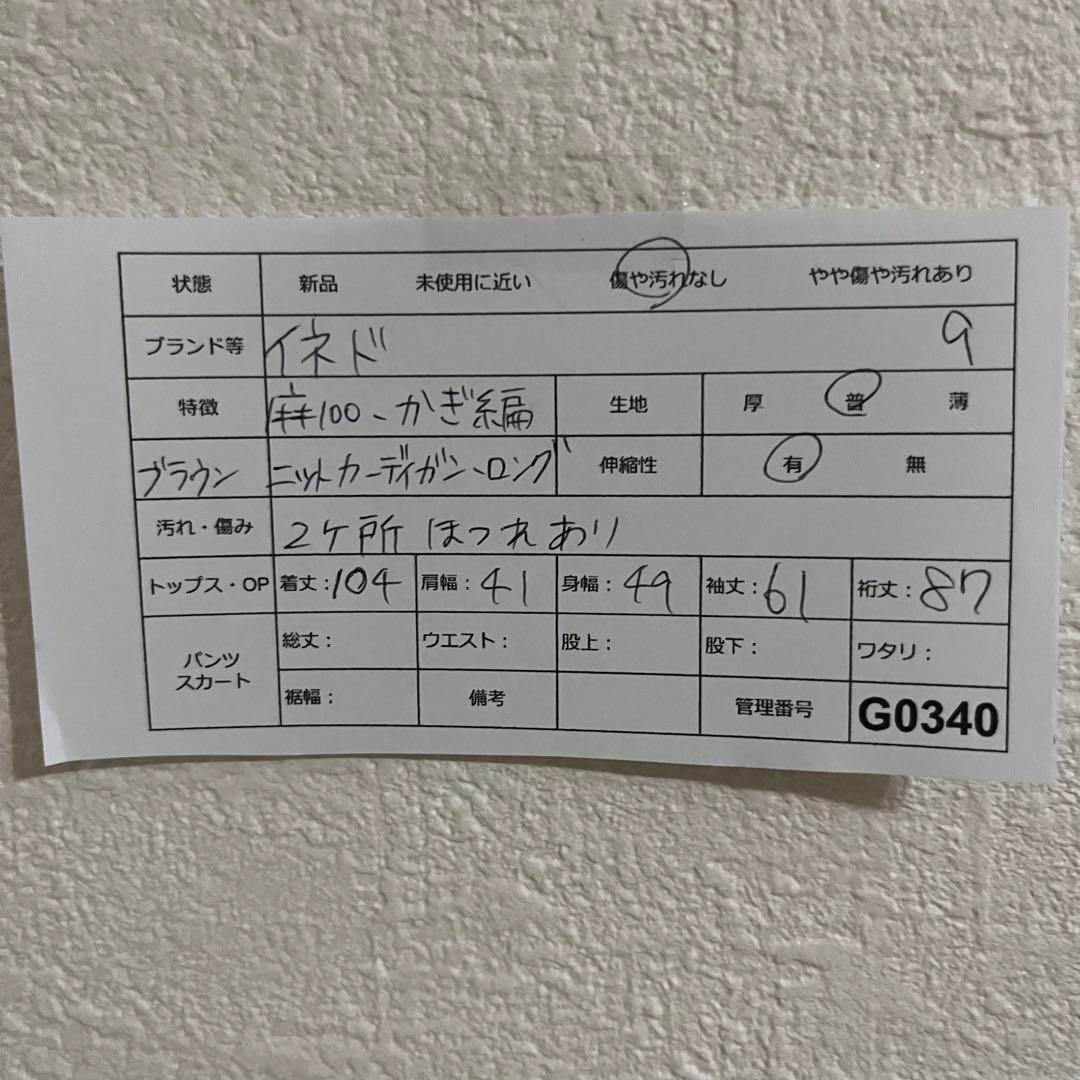 状態 新品 未使用に近い 傷や汚れなし やや傷や汚れあり
ブランド等 イネド 9
特徴 麻100、かぎ編 生地 厚 普 薄
ブラウン ニットカーディガン、ロング 伸縮性 有 無
汚れ・傷み 2ケ所ほつれあり
トップス・OP 着丈:104 肩幅:41 身幅:49 袖丈:61 裄丈:87
パンツ スカート 総丈: ウエスト: 股上: 股下: ワタリ:
裾幅: 備考 管理番号 G0340